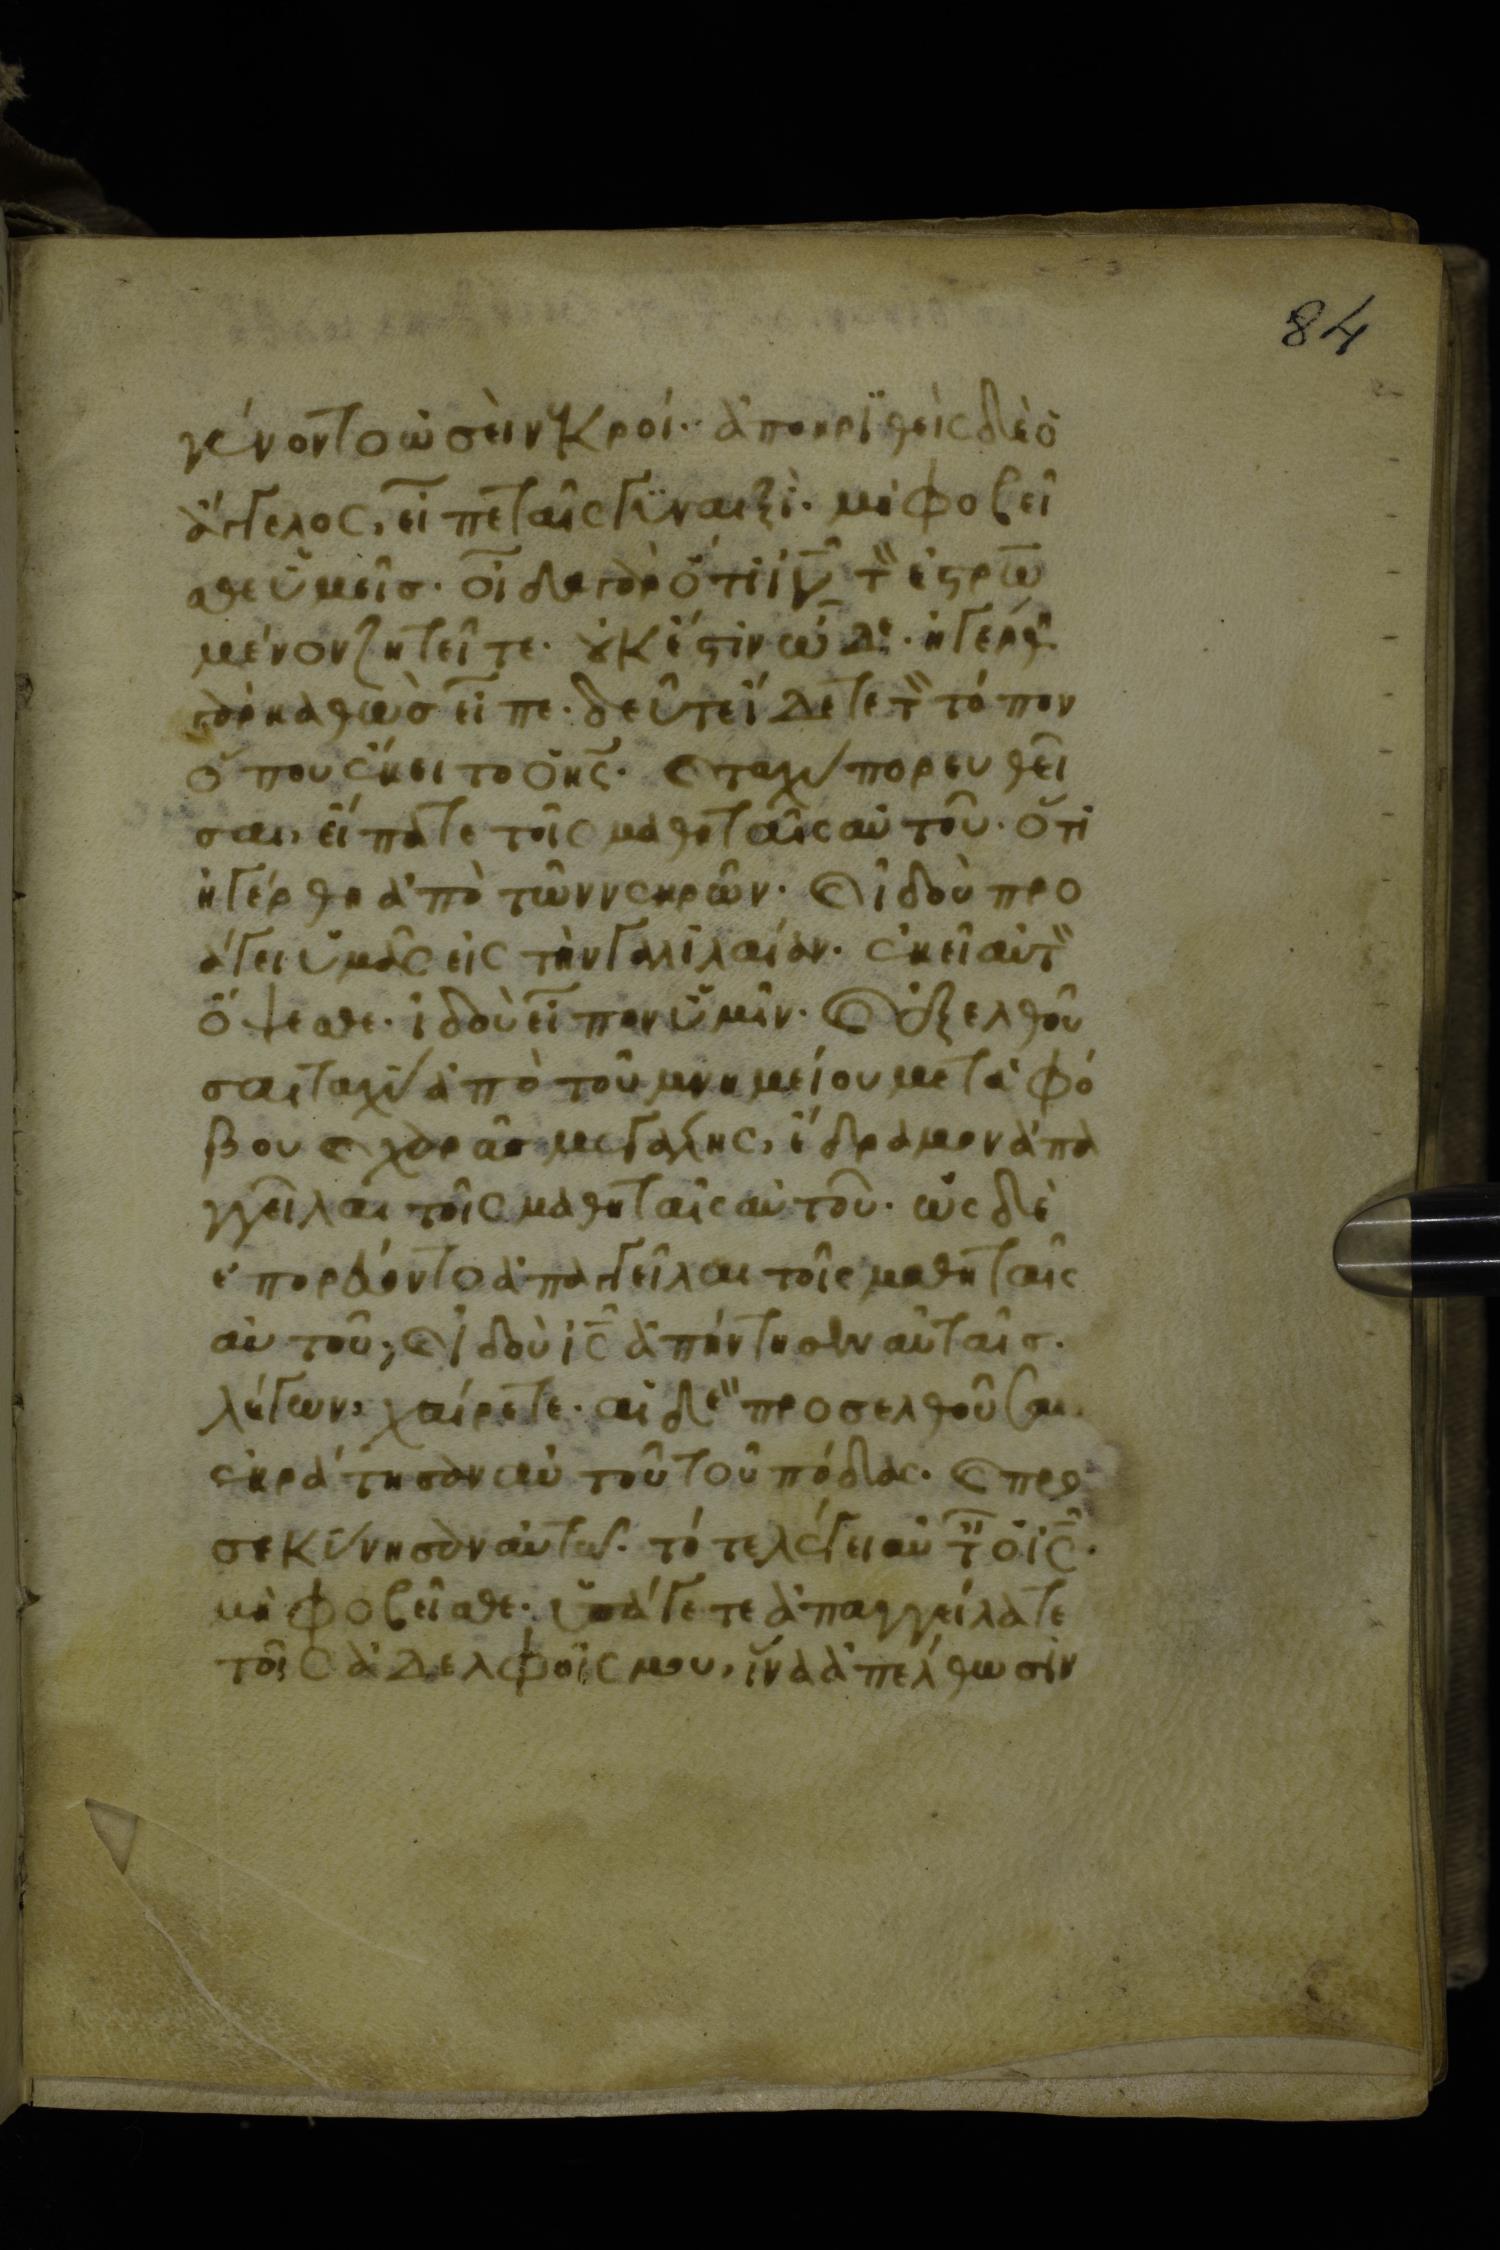 84
γένοντο ὡσεὶ νεκροί· ἀποκριθεὶς δὲ ὁ
ἄγγελος, εἶπε ταῖς γυναιξί· μὴ φοβεῖ
σθε ὑμεῖσ· οἶδα γὰρ ὅτι ἰν̅ τὸν ἐσταυρω
μένον ζητεῖτε· οὐκ ἔστιν ὧδε· ἠγέρθη
γὰρ καθὼσ εἶπε· δεῦτε ἴδετε τὸν τόπον
ὅπου ἔκειτο ὁ κς̅· καὶ ταχὺ πορευθεῖ
σαι, εἴπατε τοῖς μαθηταῖς αὐτοῦ· ὅτι
ἠγέρθη ἀπὸ τῶν νεκρῶν· καὶ ἰδοὺ προ
άγει ὑμᾶς εἰς τὴν γαλιλαίαν· ἐκεῖ αὐτὸν
ὄψεσθε· ἰδοὺ εἶπον ὑμῖν· καὶ ἐξελθοῦ
σαι ταχὺ ἀπὸ τοῦ μνημείου μετὰ φό
βου καὶ χαρᾶσ μεγάλης, ἔδραμον ἀπα
γγεῖλαι τοῖς μαθηταῖς αὐτοῦ· ὡς δὲ
ἐπορεύοντο ἀπαγγεῖλαι τοῖς μαθηταῖς
αὐτοῦ, καὶ ἰδοὺ ις̅ ἀπήντησεν αὐταῖσ·
λέγων, χαίρετε· αἱ δὲ προσελθοῦσαι,
ἐκράτησαν αὐτοῦ τοὺ πόδας· καὶ προ
σεκύνησαν αὐτῶ· τότε λέγει αὐτ ὁ ις̅·
μὴ φοβεῖσθε· ὑπάγετε ἀπαγγείλατε
τοῖς ἀδελφοῖς μου, ἵνα ἀπέλθωσιν